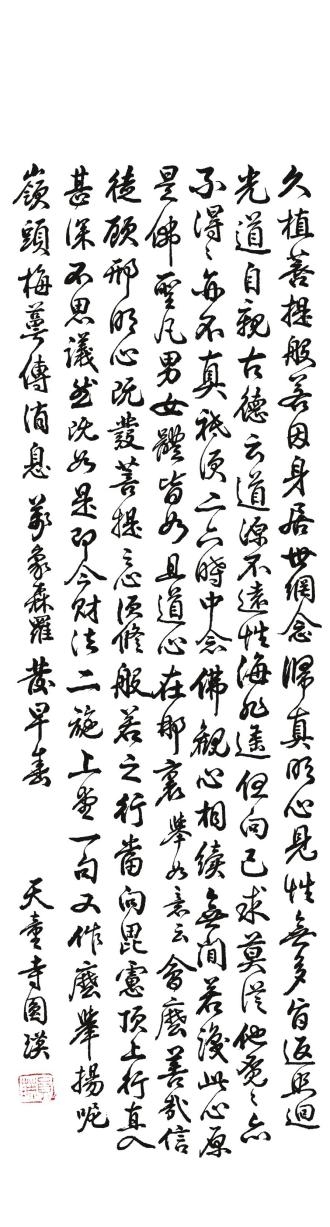 久植菩提般若因身居世網念歸真明心見性無多旨返照迴
光道自親古德云道源不遠性海非遙但向己求莫從他覓覓亦
不得得亦不真祇須二六時中念佛觀心相續無間若後此心原
是佛聖凡男女體皆如且道心在那裏舉如意云會麼善哉信
徒頋那明心既發菩提心須修般若之行當向毘盧頂上行直入
甚深不思議然既如是即今財法二施上堂一句又作麼舉揚呢
嶺頭梅蕚傳消息萬象森羅發早春
天童寺圓瑛